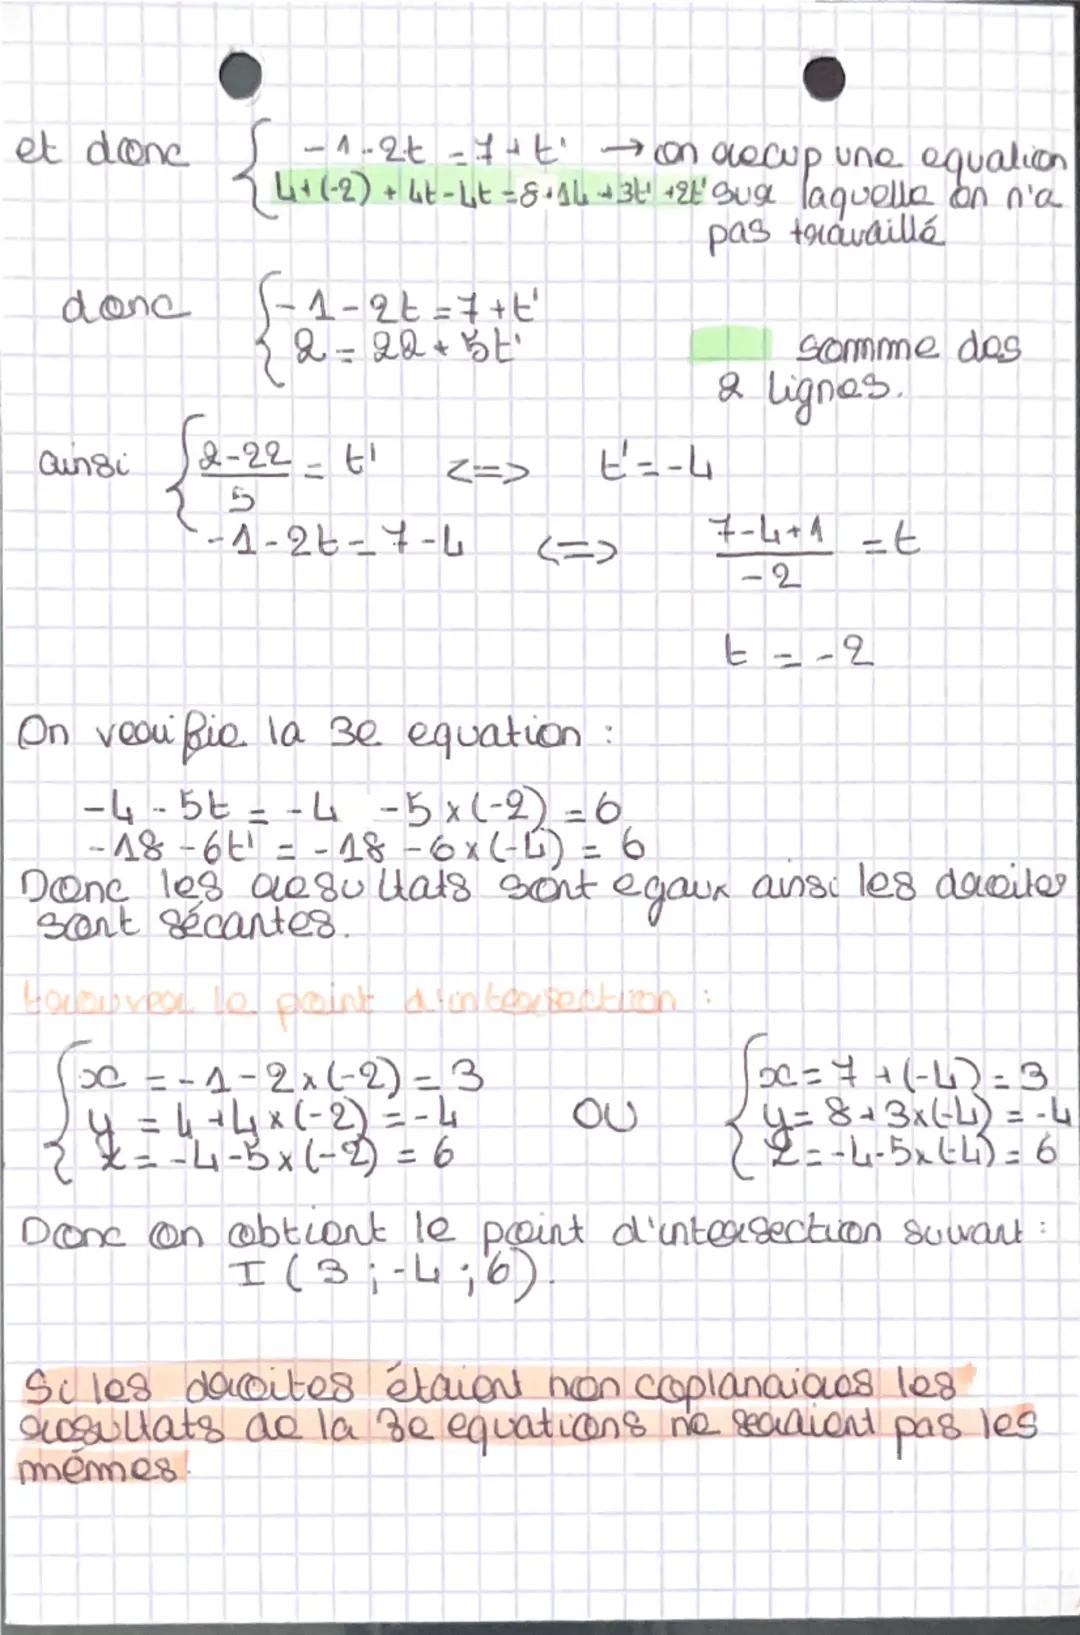 et donc { -1-2t = 7+t' → on recup une equation
4+(-2)+4t-4t = 8+14+3t'+2t' sur laquelle on n'a
pas travaillé
donc { -1-2t = 7+t'
2 = 22+5t'
somme des
2 lignes.
ainsi { 2-22/5 = t' <=> t' = -4
-1-2t = 7-4 <=> 7-4+1/-2 = t
t = -2
On verifie la 3e equation :
-4-5t = -4 -5x(-2) = 6
-18-6t' = -18-6x(-4) = 6
Donc les resultats sont egaux ainsi les droites
sont sécantes.
trouver le point d'intersection :
{ x = -1-2x(-2) = 3
y = 4+4x(-2) = -4
z = -4-5x(-2) = 6
OU
{ x = 7+(-4) = 3
y = 8+3x(-4) = -4
z = -4-5x(-4) = 6
Donc on obtient le point d'intersection suivant :
I (3 ; -4 ; 6).
Si les droites étaient non coplanaires les
resultats de la 3e equations ne seraient pas les
mêmes.